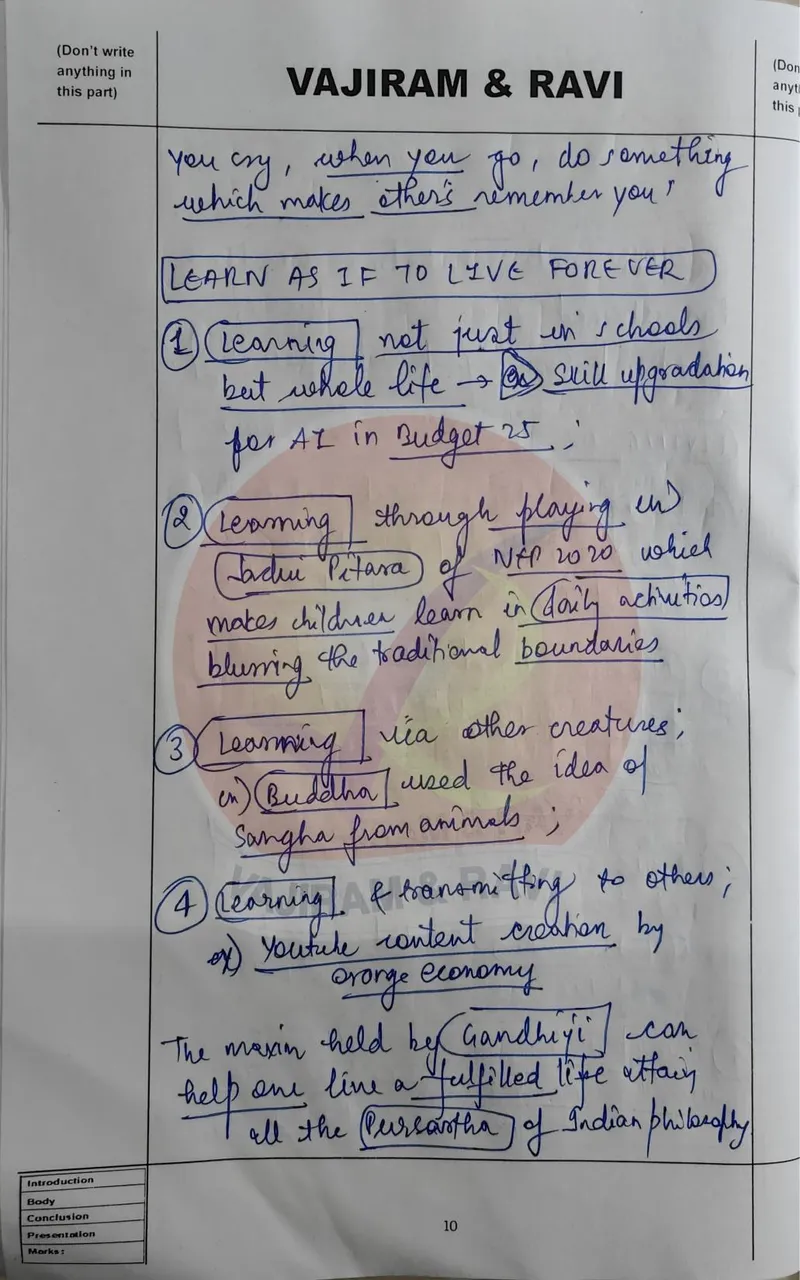 (Don't write
anything in
this part)
VAJIRAM & RAVI
(Don
anyt
this
you cry, when you go, do something
which makes other's remember you'
LEARN AS IF TO LIVE FOREVER
1 Learning not just in schools
but whole life → ex) skill upgradation
for AI in Budget 25 ;
2 Learning through playing ex)
Jadui Pitara of NEP 2020 which
makes children learn in daily activities
blurring the traditional boundaries
3 Learning via other creatures;
ex) Buddha used the idea of
Sangha from animals ;
4 Learning & transmitting to others;
ex) Youtube content creation by
orange economy
The maxim held by Gandhiji can
help one live a fulfilled life attain
all the Pursartha of Indian philosophy
VAJIRAM & RAVI
Introduction
Body
Conclusion
Presentation
Marks:
10